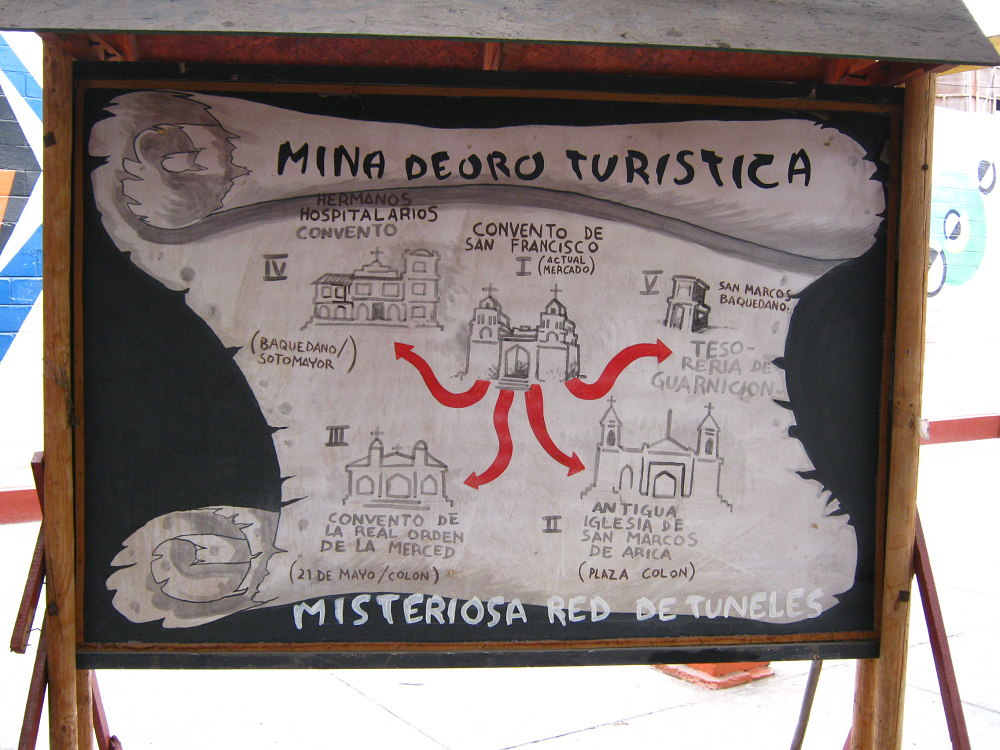 MINA DE ORO TURISTICA
HERMANOS
HOSPITALARIOS
CONVENTO
IV
(BAQUEDANO/
SOTOMAYOR)
CONVENTO DE
SAN FRANCISCO
I (ACTUAL
MERCADO)
V
SAN MARCOS
BAQUEDANO.
TESO-
RERIA DE
GUARNICION
III
CONVENTO DE
LA REAL ORDEN
DE LA MERCED
(21 DE MAYO/COLON)
II
ANTIGUA
IGLESIA DE
SAN MARCOS
DE ARICA
(PLAZA COLON)
MISTERIOSA RED DE TUNELES